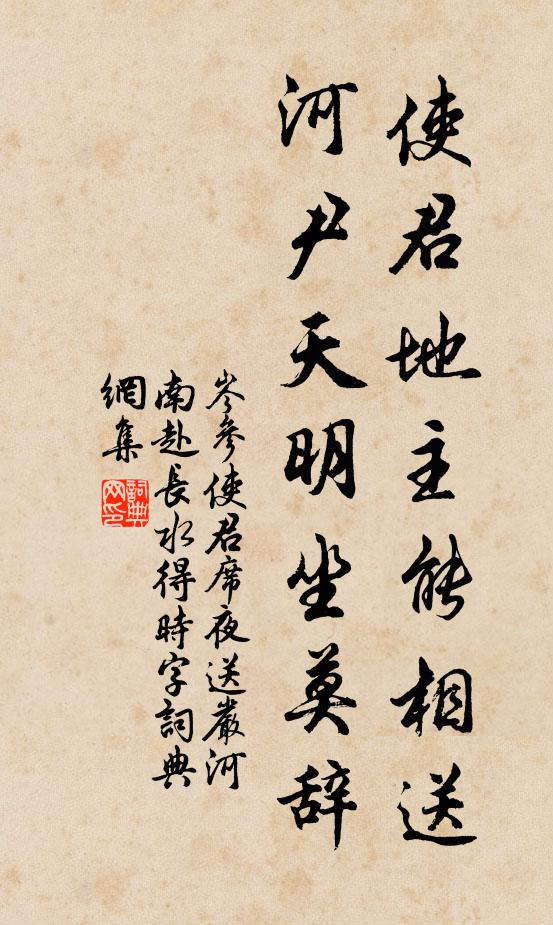 使君地主能相送
河尹天明坐莫辞
岑參使君席夜送嚴河
南赴長水得時字詞典
網集
詞典
网印